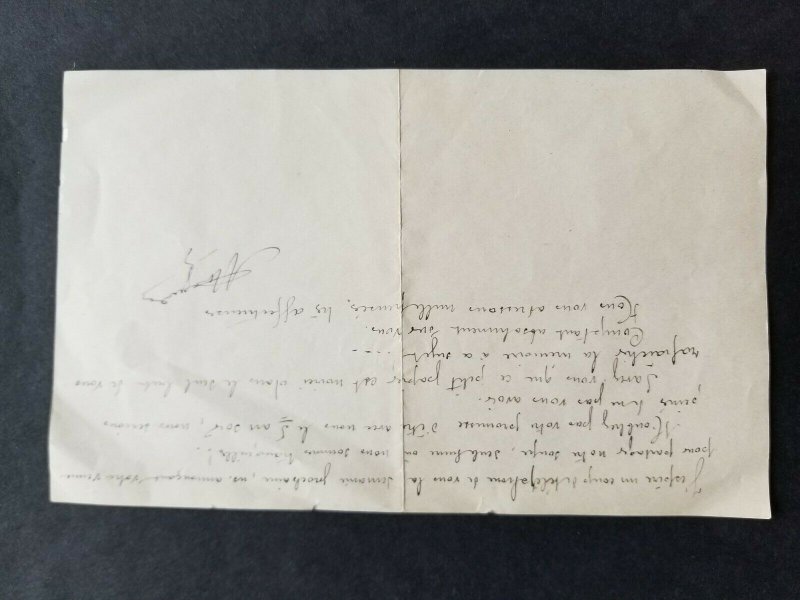 J'espère un coup de téléphone de vous la semaine prochaine, ns annonçant votre venue
pour partager notre souper, seule heure où nous sommes tranquilles!
N'oubliez pas votre promesse d'être avec nous le 5 au soir, nous serions
peinés de ne pas vous avoir.
Savez vous que ce petit papier est nourri dans le seul but de vous
rafraichir la mémoire à ce sujet ...
Comptant absolument sur vous.
Nous vous adressons mille pensées, les affectueuses